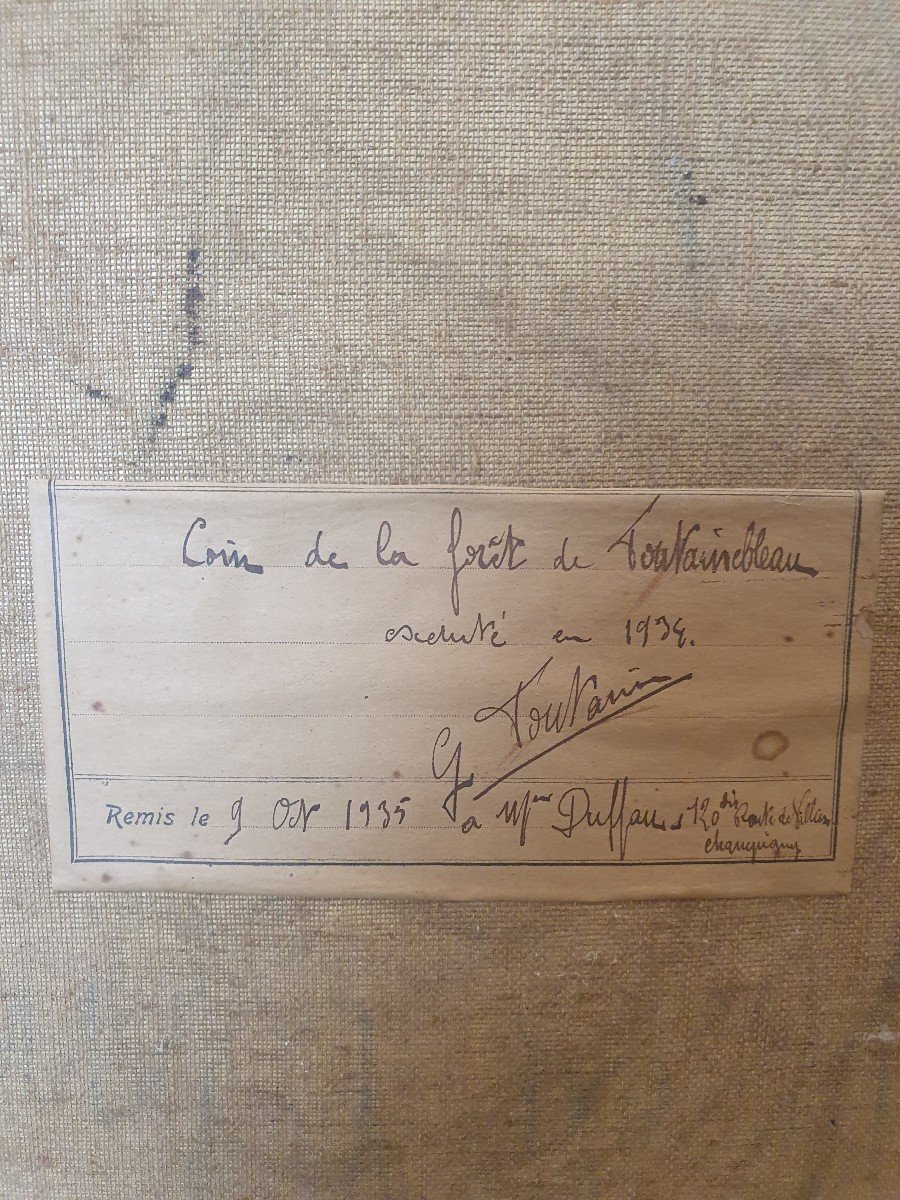 Coin de la forêt de Fontainebleau
exécuté en 1934.
G Fontanin
Remis le 9 Oct 1935 a Mme Duffau 120 bis Route de Villiers
Champigny